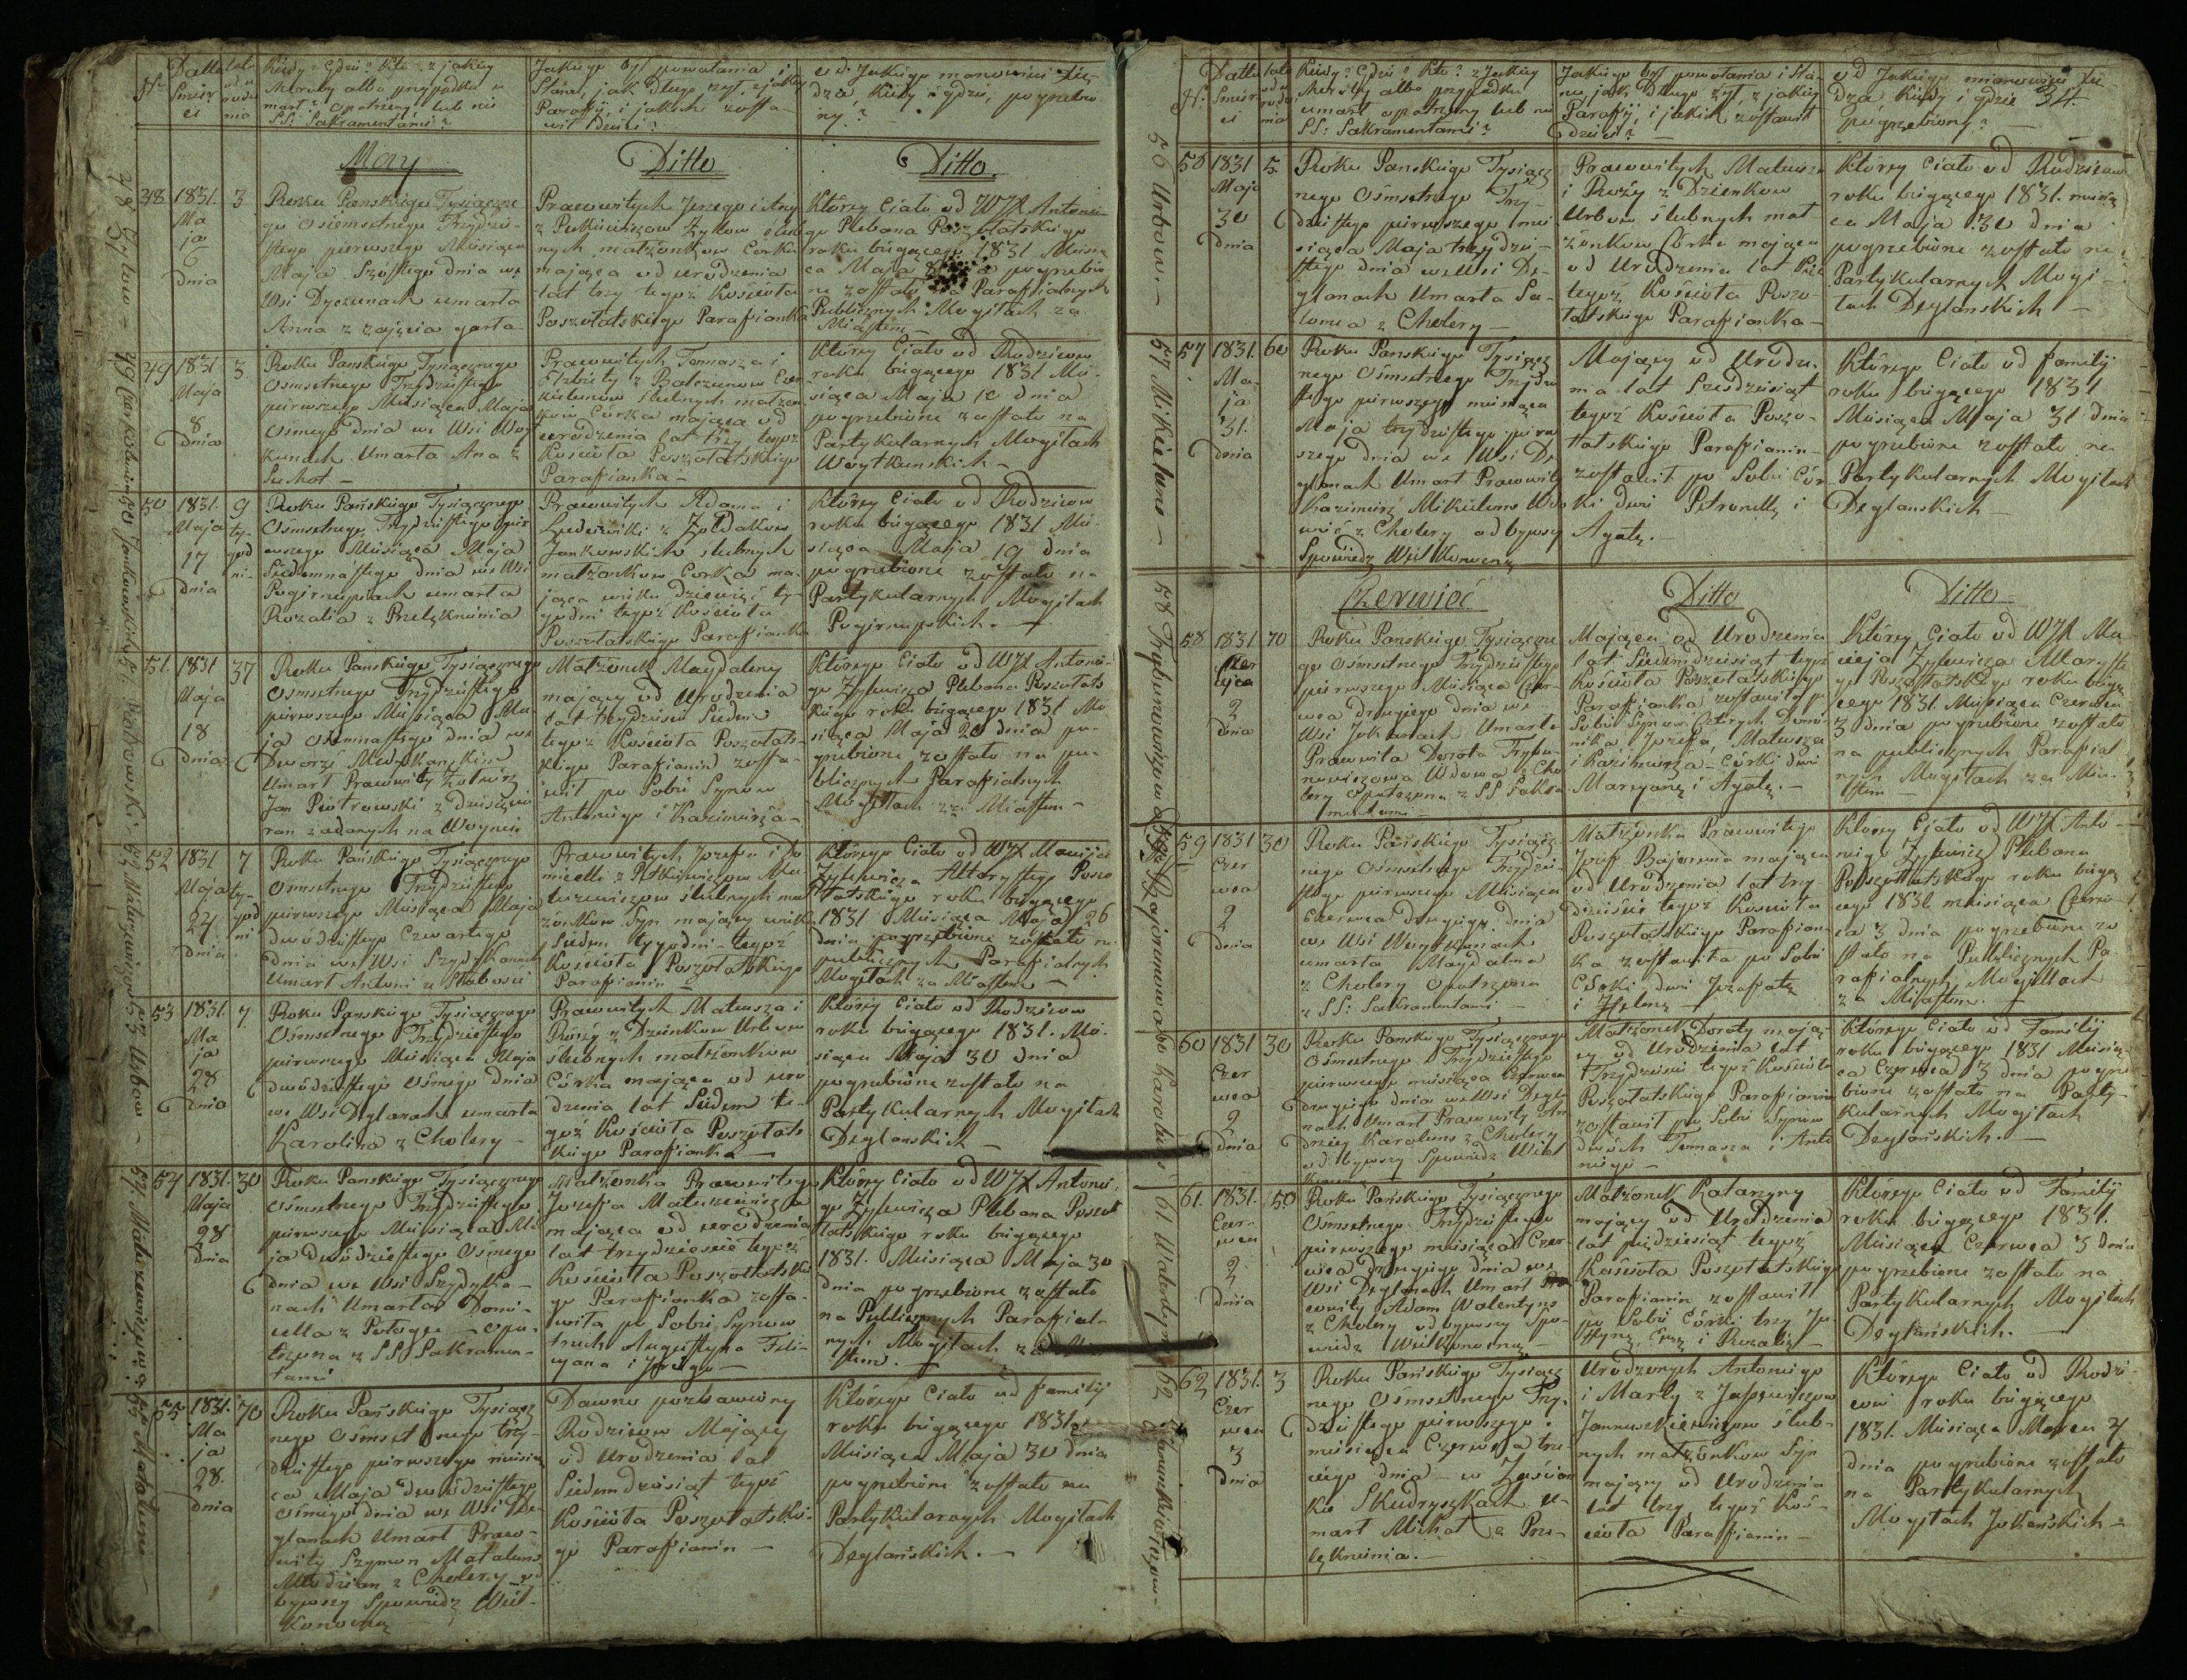 May
Ditto
Ditto
48
1831.
Ma
ja
6
dnia
3
Roku Panskiego Tysiączne
go Osiemsetnego Trzydzie
stego pierwszego Miesiąca
Maja Szóstego dnia we
Wsi Dyczunach umarła
Anna z zajęcia garła
Prawowitych Jerzego i Anny
z Petkiewiczow Zyłow ślub
nych małżonkow Corka
mająca od urodzenia
lat trzy tegoż Kościoła
Poszołatskiego Parafianka
Ktorey Ciało od WJX Antonie
go Plebana Poszołatskiego
roku biegącego 1831 Miesią
ca Maja pogrzebio
ne zostało na Parafialnych
Publicznych Mogiłach za
Miastem
49
1831
Maja
8
dnia
3
Roku Panskiego Tysiącznego
Osmsetnego Trzydziestego
pierwszego Miesiąca Maja
Osmego dnia we Wsi Woyt
kunach Umarła Ana z
Suchot
Prawowitych Tomasza i
Elżbiety z Balczunow
ślubnych małżon
kow Corka mająca od
urodzenia lat trzy tegoż
Kościoła Poszołatskiego
Parafianka
Ktorey Ciało od Rodzicow
roku biegącego 1831 Mie
siąca Maja 10 dnia
pogrzebione zostało na
Partykularnych Mogiłach
Woytkunskich
50
1831.
Maja
17
dnia
9
ty-
god
ni-
Roku Pańskiego Tysiącznego
Osmsetnego Trzydziestego pier
wszego Miesiąca Maja
Siedemnastego dnia we Wsi
Pogirnupiach umarła
Rozalia z Przelęknienia
Prawowitych Adama i
Ludowiki z Zołdakow
Jankowskich ślubnych
małżonkow Corka ma-
jąca wieku dziewięć ty-
godni tegoż Kościoła
Poszołatskiego Parafianka
Ktorey Ciało od Rodzicow
roku biegącego 1831 Mie
siąca Maja 19 dnia
pogrzebione zostało na
Partykularnych Mogiłach
Pogirnupskich.
51.
1831
Maja
18
dnia
37
Roku Panskiego Tysiącznego
Osmsetnego Trzydziestego
pierwszego Miesiąca Ma-
ja Osemnastego dnia we
Dworze
Umarł Prawowity Żołnierz
Jan Piotrowski z
ran zadanych na Woynie
Małżonek Magdaleny
mający od Urodzenia
lat trzydzieści Siedem
tegoż Kościoła Poszołats-
kiego Parafianin zosta-
wił po Sobie Synow
Antoniego i Kazimierza
Ktorego Ciało od WJX Antonie-
go Zylewicza Plebana Poszołats
kiego roku biegącego 1831 Mie
siąca Maja 20 dnia po-
grzebione zostało na pu-
blicznych Parafialnych
Mogiłach za Miastem
52
1831
Maja
24
dnia
7
ty-
god
ni
Roku Pańskiego Tysiącznego
Osmsetnego Trzydziestego
pierwszego Miesiąca Maja
dwódziestego Czwartego
dnia we Wsi Szydykanach
Umarł Antoni z Słabosci
Prawowitych Jozefa i Do
micelli z Petkiewiczow Ma
tuzewiczow ślubnych mał
żonkow Syn mający wieku
Siedem tygodni tegoż
Kościoła Poszołatskiego
Parafianin
Ktorego Ciało od WJX Macieja
Zylewicza Altarystego Poszo
łatskiego roku biegącego
1831 Miesiąca Maja 26
dnia pogrzebione zostało na
publicznych Parafialnych
Mogiłach za Miastem
53
1831.
Ma
ja
28
dnia
7
Roku Panskiego Tysiącznego
Osmsetnego Trzydziestego
pierwszego Miesiąca Maja
dwódziestego Osmego dnia
we Wsi Deglanach umarła
Karolina z Cholery
Prawowitych Mateusza i
Roży z Dzienkow Urbow
ślubnych małżonkow
Córka mająca od uro
dzenia lat Siedem te-
goż Kościoła Poszołats
kiego Parafianka
Ktorey Ciało od Rodzicow
roku biegącego 1831. Mie-
siąca Maja 30 dnia
pogrzebione zostało na
Partykularnych Mogiłach
Deglanskich
54
1831.
Maja
28
dnia
30
Roku Panskiego Tysiącznego
Osmsetnego Trzydziestego
pierwszego Miesiąca Ma
ja dwódziestego Osmego
dnia we Wsi Szydyka-
nach Umarła Domi-
cella z Połogu opa-
trzona z SS Sakramen-
tami
Małżonka Prawowitego
Jozefa Matuzewicza
mająca od urodzenia
lat trzydzieście tegoż
Kościoła Poszołatskie
go Parafianka zosta-
wiła po Sobie Synow
trzech Augustyna Feli-
cyana i Jerzego
Ktorey Ciało od WJX Antonie-
go Zylewicza Plebana Poszo
łatskiego roku biegącego
1831. Miesiąca Maja 30
dnia pogrzebione zostało
na Publicznych Parafial-
nych Mogiłach za Mia
stem.
55
1831.
Ma
ja
28.
dnia
70
Roku Pańskiego Tysiącz
nego Osmsetnego trzy-
dziestego pierwszego miesią
ca Maja dwódziestego
ósmego dnia we Wsi De-
glanach Umarł Prawo-
wity Szymon Matalunis
Młodzian z Cholery od
bywszy Spowiedz Wiel-
konocną
Dawno pozbawiony
Rodzicow Mający
od Urodzenia lat
Siedemdziesiąt tegoż
Kościoła Poszołatskie-
go Parafianin
Ktorego Ciało od familij
roku biegącego 1831.
Miesiąca Maja 30 dnia
pogrzebione zostało na
Partykularnych Mogiłach
Deglańskich.
34.
56 Urbow.
56
1831
Maja
30
dnia
5
Roku Panskiego Tysiącz
nego Osmsetnego Trzy-
dziestego pierwszego mie
siąca Maja trzydzie-
stego dnia we Wsi De-
glanach Umarła Sa-
lomea z Cholery
Prawowitych Mateusza
i Roży z Dzienkow
Urbow ślubnych mał
żonkow Córka mająca
od Urodzenia lat Pięć
tegoż Kościoła Poszo-
łatskiego Parafianka
Ktorey Ciało od Rodzicow
roku biegącego 1831. miesią
ca Maja 30 dnia
pogrzebione zostało na
Partykularnych Mogi-
łach Deglanskich
57
1831.
Ma-
ja
31.
dnia
60
Roku Panskiego Tysiącz
nego Osmsetnego Trzydzie
stego pierwszego miesiąca
Maja trzydziestego pierw
szego dnia we Wsi De
glanach Umarł Prawowity
Kazimierz Mikielunis Wdo
wiec z Cholery odbywszy
Spowiedz Wielkonocną
Mający od Urodze-
nia lat Sześdziesiąt
tegoż Kościoła Poszo-
łatskiego Parafianin
zostawił po Sobie Cór
ki dwie Petronellę i
Agatę.
Ktorego Ciało od familij
roku biegącego 1831
Miesiąca Maja 31 dnia
pogrzebione zostało na
Partykularnych Mogiłach
Deglanskich
Czerwiec
Ditto
Ditto
58
1831
Czer
wca
2
dnia
70
Roku Panskiego Tysiączne
go Osmsetnego Trzydziestego
pierwszego Miesiąca Czer-
wca drugiego dnia we
Wsi Jokanach Umarła
Prawowita Dorota Trybu-
nowiczowa Wdowa z Cho
lery opatrzona z SS Sakra
mentami
Mająca od Urodzenia
lat Siedmdziesiąt tegoż
Kościoła Poszołatskiego
Parafianka zostawiła po
Sobie Synow Czterych Domi
nika, Jozefa, Mateusza
i Kazimierza Córki dwie
Maryannę i Agatę.
Ktorey Ciało od WJX Ma
cieja Zylewicza Altaryste
go Poszołatskiego roku biegą
cego 1831. Miesiąca Czerwca
3 dnia pogrzebione zostało
na publicznych Parafial
nych Mogiłach za Mia-
stem
59
1831
Czer
wca
2
dnia
30
Roku Pańskiego Tysiącz
nego Osmsetnego Trzydzie-
stego pierwszego Miesiąca
Czerwca drugiego dnia
we Wsi Woytkunach
umarła Magdalena
z Cholery Opatrzona
z SS: Sakramentami
Małżonka Prawowitego
Jozefa Bajoruna mająca
od Urodzenia lat trzy
dzieście tegoż Kościoła
Poszołatskiego Parafian-
ka zostawiła po Sobie
Córki dwie Jozefatę
i Helenę
Ktorey Ciało od WJX Anto-
niego Zylewicza Plebana
Poszołatskiego roku biegą
cego 1831 miesiąca Czerw-
ca 3 dnia pogrzebione zo
stało na Publicznych Pa-
rafialnych Mogiłach
za Miastem.
60
1831
Czer
wca
2
dnia
30
Roku Panskiego Tysiącznego
Osmsetnego Trzydziestego
pierwszego miesiąca Czerwca
drugiego dnia we Wsi Degla
nach Umarł Prawowity An
drzey Karolunis z Cholery
odbywszy Spowiedz Wiel
Małżonek Doroty mają-
cy od Urodzenia lat
Trzydzieści tegoż Kościoła
Poszołatskiego Parafianin
zostawił po Sobie Synow
dwóch Tomasza i Anto
niego
Ktorego Ciało od Familij
roku biegącego 1831 Miesią
ca Czerwca 3 dnia pogrze
bione zostało na Party-
kularnych Mogiłach
Deglańskich.
61.
1831.
Czer-
wca
2
dnia
50
Roku Pańskiego Tysiącznego
Osmsetnego Trzydziestego
pierwszego miesiąca Czer-
wca Drugiego dnia we
Wsi Deglanach Umarł Pra
wowity Adam Walentynis
z Cholery odbywszy Spo-
wiedz Wielkonocną
Małżonek Katarzyny
mający od Urodzenia
lat pięćdziesiąt tegoż
Kościoła Poszołatskiego
Parafianin zostawił
po Sobie Córki trzy Ju
stynę, Ewę i Rozalię
Ktorego Ciało od Familij
roku biegącego 1831.
Miesiąca Czerwca 3 dnia
pogrzebione zostało na
Partykularnych Mogiłach
Deglańskich.
62
1831.
Czer
wca
3
dnia
3
Roku Pańskiego Tysiącz
nego Osmsetnego Trzy-
dziestego pierwszego
miesiąca Czerwca trze-
ciego dnia w Zaścian
ku Skudryszkach u-
marł Michał z Prze-
lęknienia.
Urodzonych Antoniego
i Marty z Jasiewiczow
Januszkiewiczow ślub-
nych małżonkow Syn
mający od Urodzenia
lat trzy tegoż Koś-
cioła Parafianin
Ktorego Ciało od Rodzi-
cow roku biegącego
1831. Miesiąca 4
dnia pogrzebione zostało
na Partykularnych
Mogiłach Jokańskich